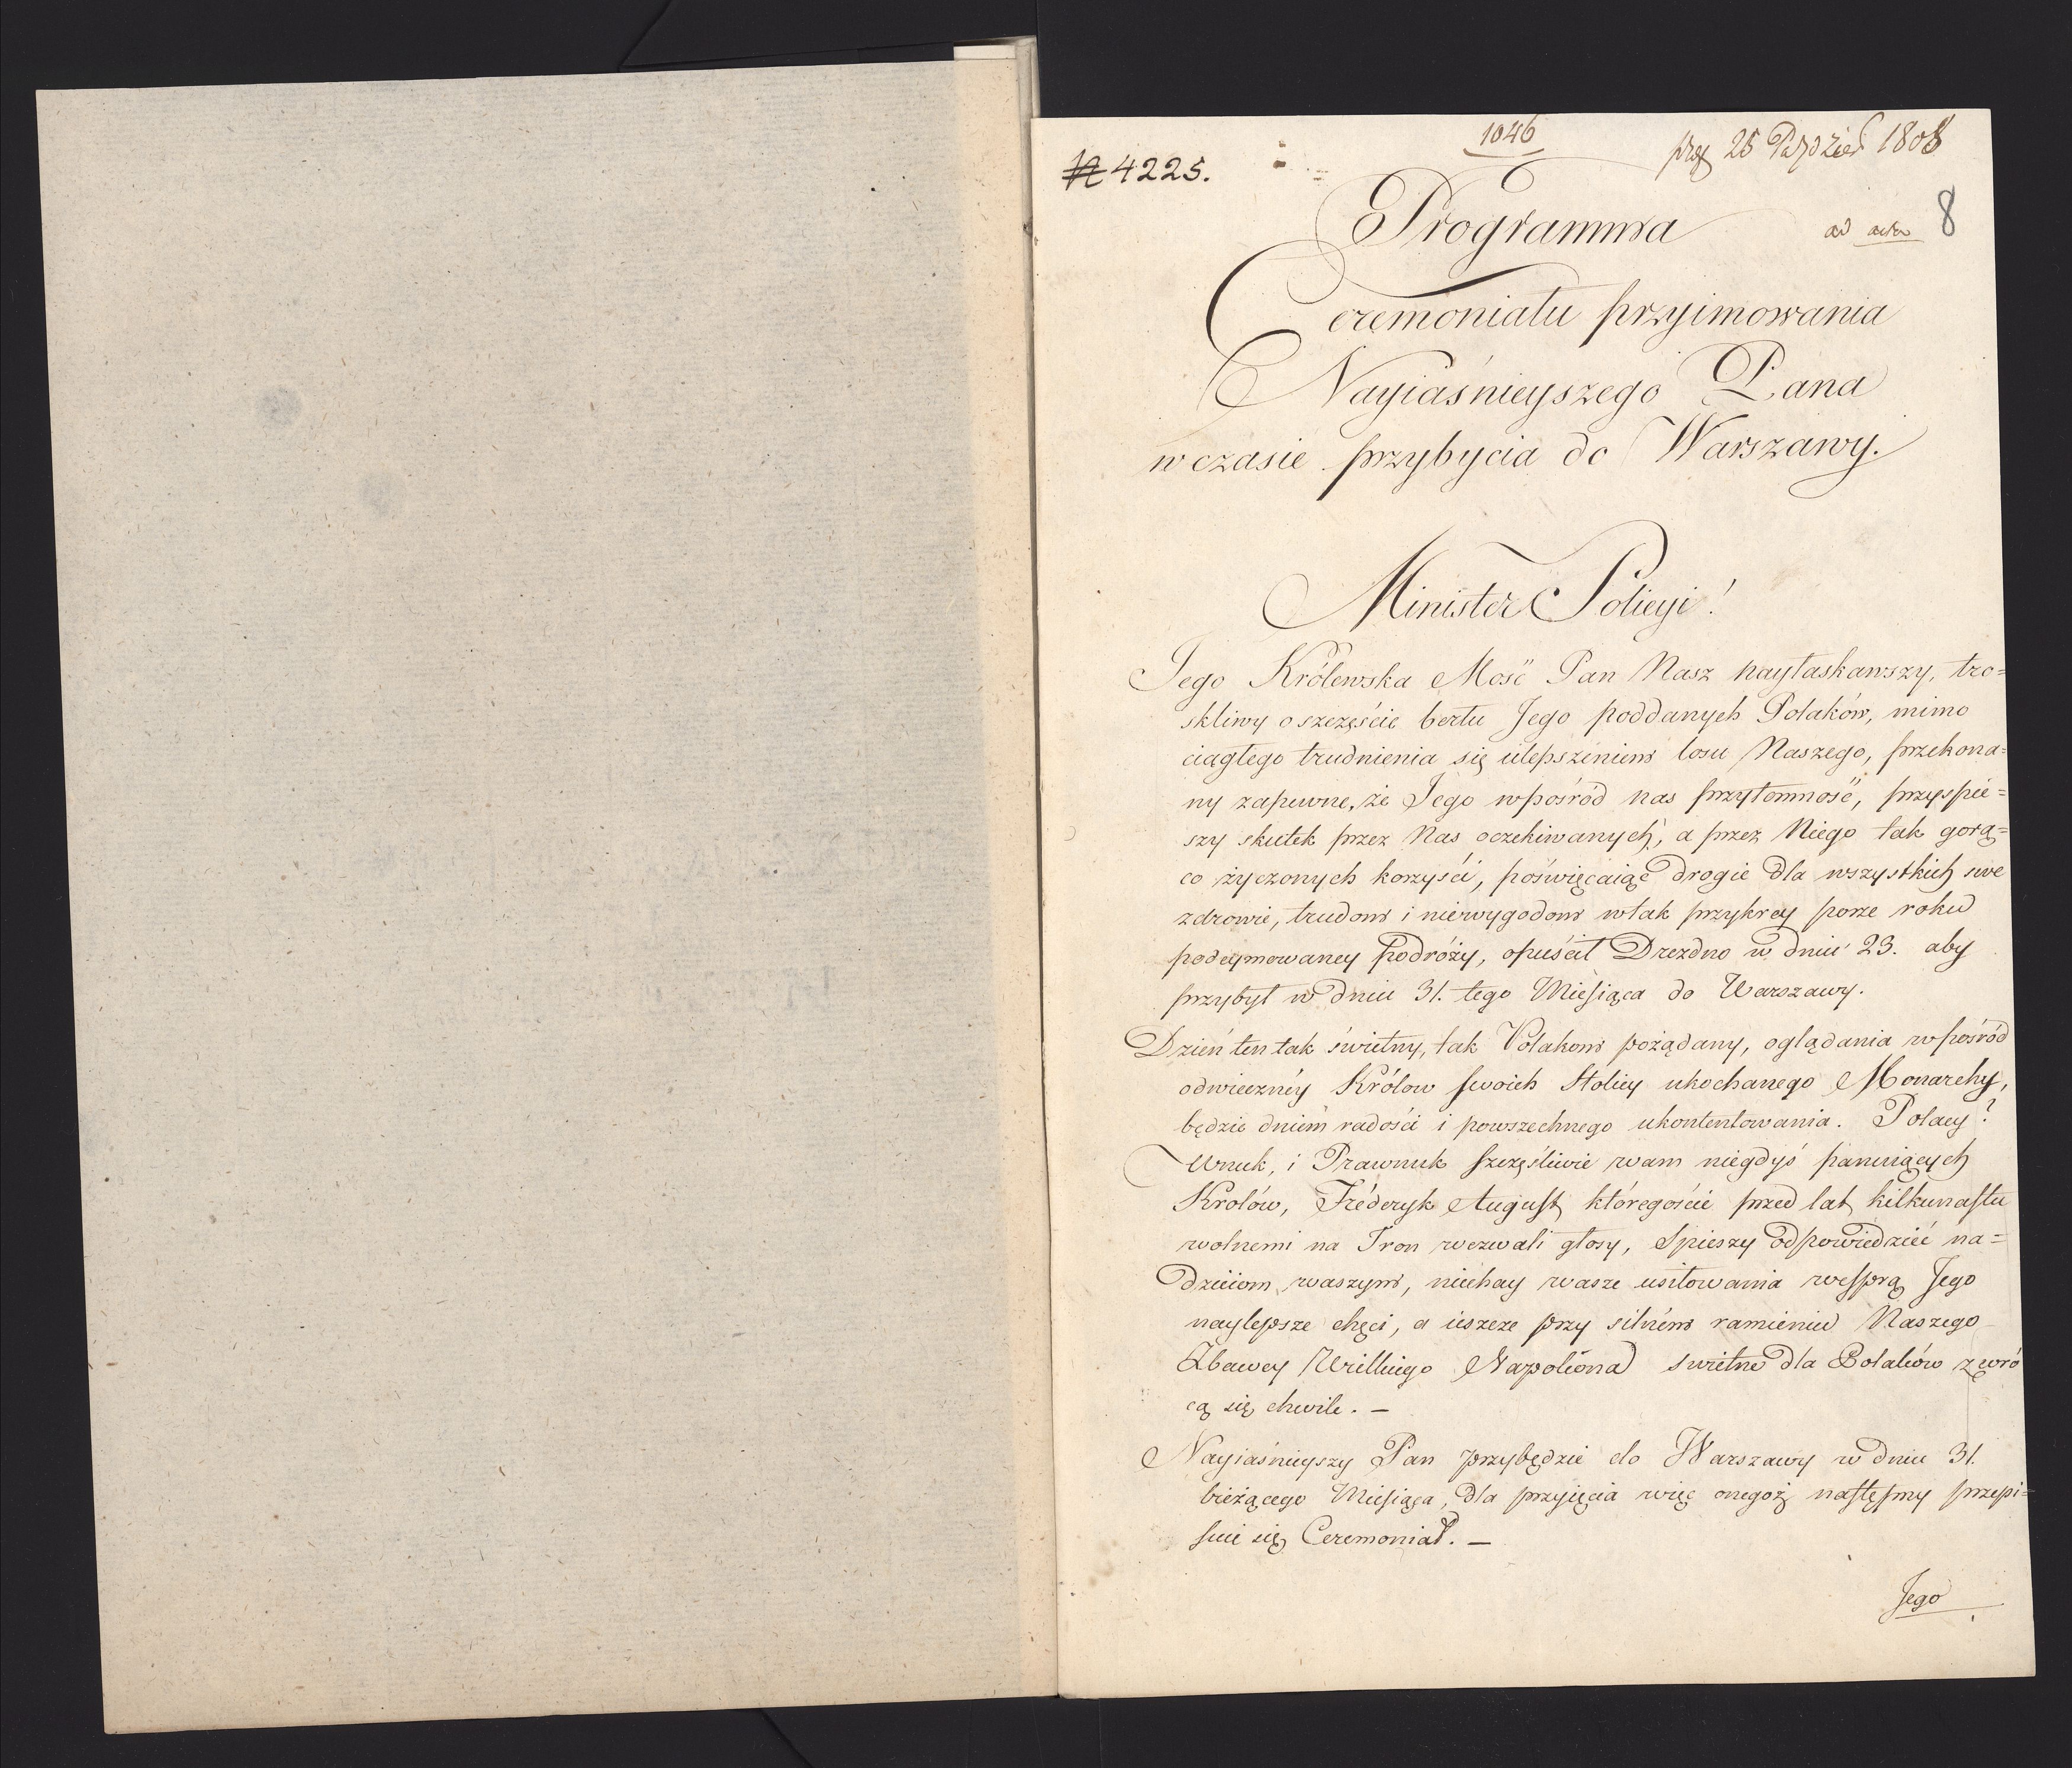 1046
N 4225.
25 Paździer 1808
8
ad acta
Programma
Ceremoniału przyimowania
Nayiaśnieyszego Pana
w czasie przybycia do Warszawy.
Minister Policyi!
Jego Królewska Mość Pan Nasz nayłaskawszy, tro=
skliwy o szczęście berłu Jego poddanych Polaków, mimo
ciągłego trudnienia się ulepszeniem losu Naszego, przekona=
ny zapewne, że Jego wpośród nas przytomność, przyspie=
szy skutek przez Nas oczekiwanych, a przez Niego tak gorą=
co życzonych korzyści, poświęcaiąc drogie dla wszystkich swe
zdrowie, trudom i niewygodom wtak przykrey porze roku
podeymowaney podróży, opuścił Drezdno w dniu 23. aby
przybył w dniu 31. tego Miesiąca do Warszawy.
Dzień ten tak świetny, tak Polakom pożądany, oglądania wpośród
odwiecznéy Królow swoich Stolicy ukochanego Monarchy,
będzie dniem radości i powszechnego ukontentowania. Polacy!
Wnuk, i Prawnuk szczęśliwie wam niegdyś panuiących
Krolów, Fréderyk August, któregoście przed lat kilkunastu
wolnemi na Tron wezwali głosy, Spieszy odpowiedzieć na=
dzieiom waszym, niechay wasze usiłowania wesprą Jego
naylepsze chęci, a ieszcze przy silném ramieniu Naszego
Zbawcy Wielkiego Napoleona swietne dla Polaków zwró
cą się chwile. —
Nayiaśnieyszy Pan przybędzie do Warszawy w dniu 31.
bieżącego Miesiąca, dla przyięcia więc onegoż następny przepi=
suie się Ceremoniał. —
Jego